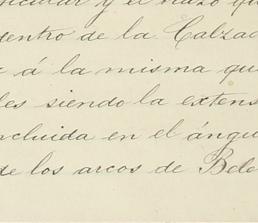 y el
dentro de la Calzad
á la misma que
les siendo la extens
ncluida en el ángu
de los arcos de Bele